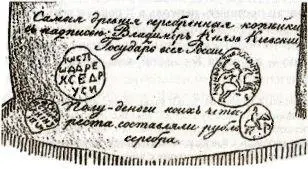 Самыя древнія серебренныя копѣйки
съ надписью: Владимiръ Князь Кіевскій
Государь всея Россіи
КНСП
ШАДРЕ
КСЕДР
УСИ
Полу-деньги коихъ четы
реста составляли рубль
серебра.